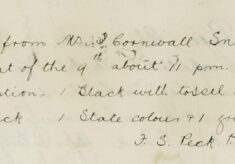 from Mr Cornwall Sn
at of the 9th about 11 p.m.
tion. 1 Black with tossel
ck 1 State colour & 1 gr
F. S. Peck P.